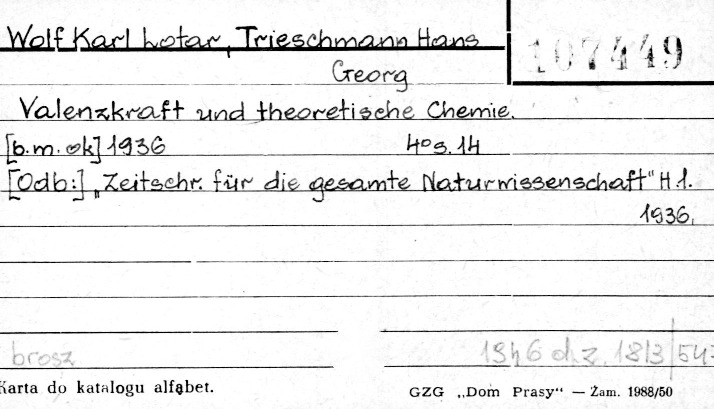 Wolf Karl Lotar, Trieschmann Hans
107449
Georg
Valenzkraft und theoretische Chemie.
[b.m. ok] 1936 4° s. 14
[Odb:] „Zeitschr. für die gesamte Naturwissenschaft" H 1.
1936.
brosz
1946 d.z. 1813/54
Karta do katalogu alfabet.
GZG „Dom Prasy" — Żam. 1988/50